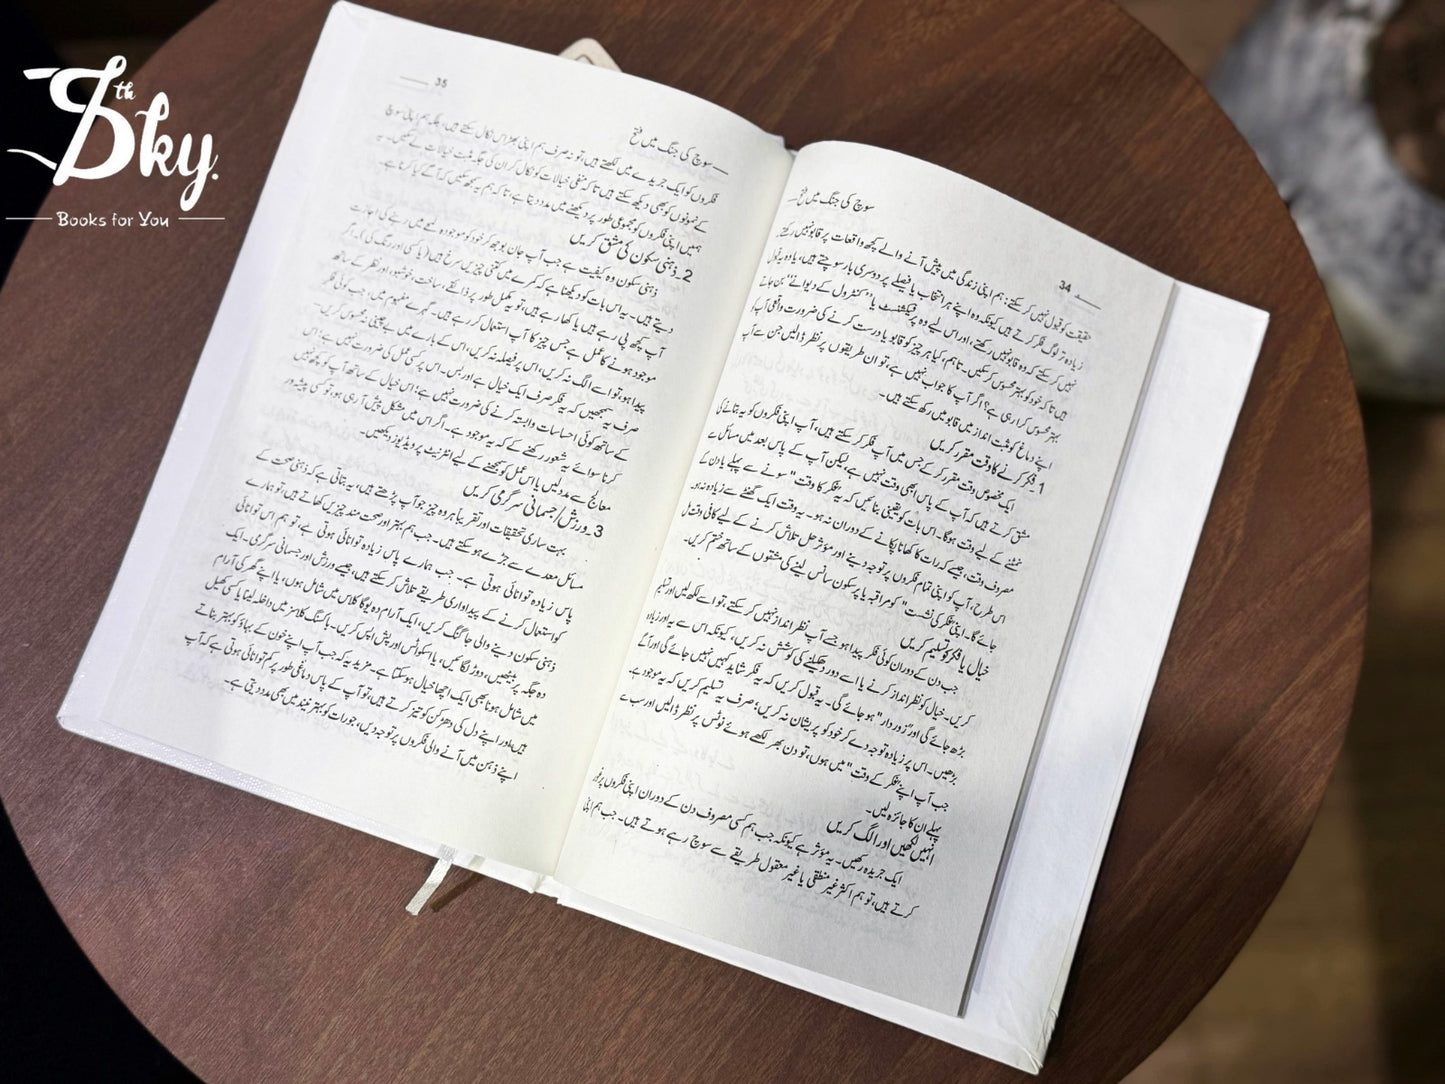 8th Sky.
Books for You
سوچ کی جنگ میں فتح
34
حقیقت کو قبول نہیں کر سکتے: ہم اپنی زندگی میں پیش آنے والے کچھ واقعات پر قابو نہیں رکھتے۔
زیادہ تر لوگ فکر کرتے ہیں کیونکہ وہ اپنے ہر انتخاب یا فیصلے پر دوسری بار سوچتے ہیں، یا وہ یہ قبول
نہیں کر سکتے کہ وہ قابو نہیں رکھتے، اور اس لیے وہ پرفیکشنسٹ یا "کنٹرول کے دیوانے" بن جاتے
ہیں تاکہ خود کو بہتر محسوس کر سکیں۔ تاہم، کیا ہر چیز کو قابو یا درست کرنے کی ضرورت واقعی آپ کو
بہتر محسوس کرا رہی ہے؟ اگر آپ کا جواب نہیں ہے، تو ان طریقوں پر نظر ڈالیں جن سے آپ
اپنے دماغ کو مثبت انداز میں قابو میں رکھ سکتے ہیں۔
1۔ فکر کرنے کا وقت مقرر کریں
ایک مخصوص وقت مقرر کر کے جس میں آپ فکر کر سکتے ہیں، آپ اپنی فکروں کو یہ بتانے کی
مشق کرتے ہیں کہ آپ کے پاس ابھی وقت نہیں ہے، لیکن آپ کے پاس بعد میں مسائل سے
نمٹنے کے لیے وقت ہوگا۔ اس بات کو یقینی بنائیں کہ یہ "فکر کا وقت" سونے سے پہلے یا دن کے
مصروف وقت، جیسے کہ رات کا کھانا پکانے کے دوران نہ ہو۔ یہ وقت ایک گھنٹے سے زیادہ نہ ہو۔
اس طرح، آپ کو اپنی تمام فکروں پر توجہ دینے اور مؤثر حل تلاش کرنے کے لیے کافی وقت مل
جائے گا۔ اپنی "فکر کی نشست" کو مراقبہ یا پر سکون سانس لینے کی مشقوں کے ساتھ ختم کریں۔
خیال یا فکر کو تسلیم کریں
جب دن کے دوران کوئی فکر پیدا ہو جسے آپ نظر انداز نہیں کر سکتے، تو اسے لکھ لیں اور تسلیم
کریں۔ خیال کو نظر انداز کرنے یا اسے دور دھکیلنے کی کوشش نہ کریں، کیونکہ اس سے یہ اور زیادہ
بڑھ جائے گی اور "زور دار" ہو جائے گی۔ یہ قبول کریں کہ یہ فکر شاید کہیں نہیں جائے گی اور آگے
بڑھیں۔ اس پر زیادہ توجہ دے کر خود کو پریشان نہ کریں؛ صرف یہ تسلیم کریں کہ یہ موجود ہے۔
جب آپ اپنے "فکر کے وقت" میں ہوں، تو دن بھر لکھے ہوئے نوٹس پر نظر ڈالیں اور سب سے
پہلے ان کا جائزہ لیں۔
انہیں لکھیں اور الگ کریں
ایک جریدہ رکھیں۔ یہ مؤثر ہے کیونکہ جب ہم کسی مصروف دن کے دوران اپنی فکروں پر غور
کرتے ہیں، تو ہم اکثر غیر منطقی یا غیر معقول طریقے سے سوچ رہے ہوتے ہیں۔ جب ہم اپنی
35
سوچ کی جنگ میں فتح
فکروں کو ایک جریدے میں لکھتے ہیں، تو نہ صرف ہم اپنی بھڑاس نکال سکتے ہیں، بلکہ ہم اپنی سوچ
کے نمونوں کو بھی دیکھ سکتے ہیں تاکہ منفی خیالات کو نکال کر ان کی جگہ مثبت خیالات لے سکیں۔ یہ
ہمیں اپنی فکروں کو مجموعی طور پر دیکھنے میں مدد دیتا ہے، تاکہ ہم یہ سمجھ سکیں کہ آگے کیا کرنا ہے۔
2۔ ذہنی سکون کی مشق کریں
ذہنی سکون وہ کیفیت ہے جب آپ جان بوجھ کر خود کو موجودہ لمحے میں رہنے کی اجازت
دیتے ہیں۔ یہ اس بات کو دیکھنا ہے کہ کمرے میں کتنی چیزیں سرخ ہیں (یا کسی اور رنگ کی)۔ اگر
آپ کچھ پی رہے ہیں یا کھا رہے ہیں، تو یہ مکمل طور پر ذائقے، ساخت، خوشبو، اور نظر کے ساتھ
موجود ہونے کا عمل ہے جس چیز کا آپ استعمال کر رہے ہیں۔ گہرے مفہوم میں، جب کوئی فکر
پیدا ہو، تو اسے الگ نہ کریں، اس پر فیصلہ نہ کریں، اس کے بارے میں بے چینی نہ محسوس کریں۔
صرف یہ سمجھیں کہ یہ فکر صرف ایک خیال ہے اور بس۔ اس پر کسی عمل کی ضرورت نہیں ہے؛ اس
کے ساتھ کوئی احساسات وابستہ کرنے کی ضرورت نہیں ہے؛ اس خیال کے ساتھ آپ کو کچھ نہیں
کرنا سوائے یہ شعور رکھنے کے کہ یہ موجود ہے۔ اگر اس میں مشکل پیش آ رہی ہو، تو کسی پیشہ ور
معالج سے مدد لیں یا اس عمل کو سمجھنے کے لیے انٹرنیٹ پر ویڈیوز دیکھیں۔
3۔ ورزش / جسمانی سرگرمی کریں
بہت ساری تحقیقات اور تقریباً ہر وہ چیز جو آپ پڑھتے ہیں، یہ بتاتی ہے کہ ذہنی صحت کے
مسائل معدے سے جڑے ہو سکتے ہیں۔ جب ہم بہتر اور صحت مند چیزیں کھاتے ہیں تو ہمارے
پاس زیادہ توانائی ہوتی ہے۔ جب ہمارے پاس زیادہ توانائی ہوتی ہے، تو ہم اس توانائی
کو استعمال کرنے کے پیداواری طریقے تلاش کر سکتے ہیں، جیسے ورزش اور جسمانی سرگرمی۔ ایک
ذہنی سکون دینے والی جاگنگ کریں، ایک آرام دہ یوگا کلاس میں شامل ہوں، یا اپنے گھر کی آرام
دہ جگہ پر بیٹھیں، دوڑ لگائیں، یا اسکوٹس اور پش اپس کریں۔ باکسنگ کلاسز میں داخلہ لینا یا کسی کھیل
میں شامل ہونا بھی ایک اچھا خیال ہو سکتا ہے۔ مزید یہ کہ جب آپ اپنے خون کے بہاؤ کو بہتر بناتے
ہیں اور اپنے دل کی دھڑکن کو تیز کرتے ہیں، تو آپ کے پاس دماغی طور پر کم توانائی ہوتی ہے کہ آپ
اپنے ذہن میں آنے والی فکروں پر توجہ دیں، جو رات کو بہتر نیند میں بھی مدد دیتی ہے۔